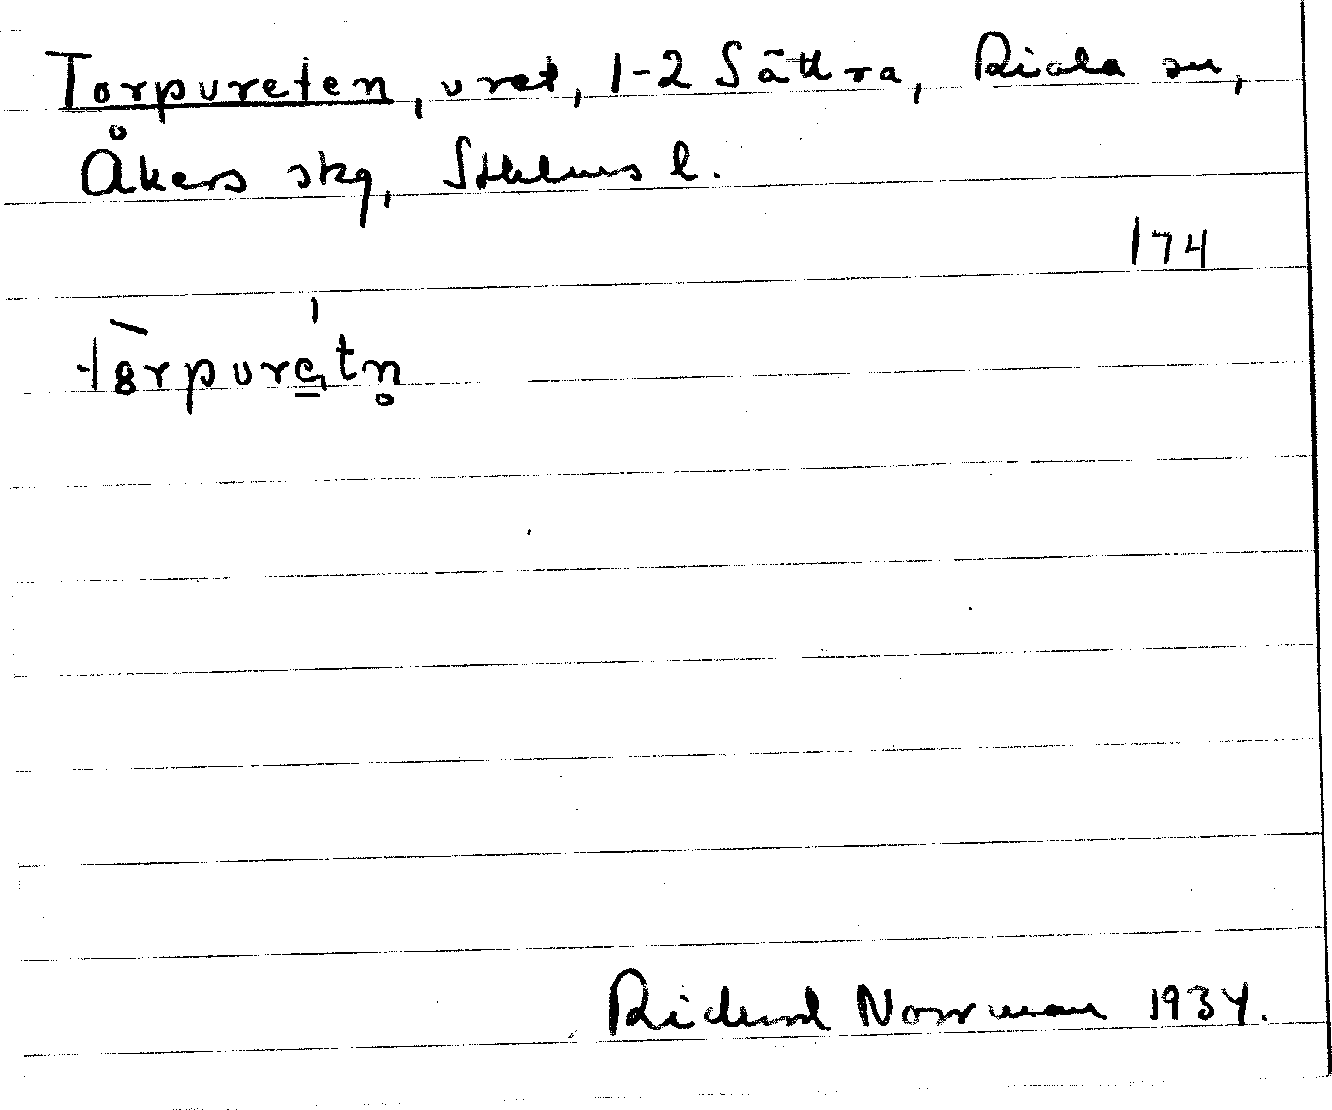 Torpureten, uret, 1-2 Sättra, Riala sn,
Åkers skg, Sthlms l.
174
Rickard Norrman 1934.